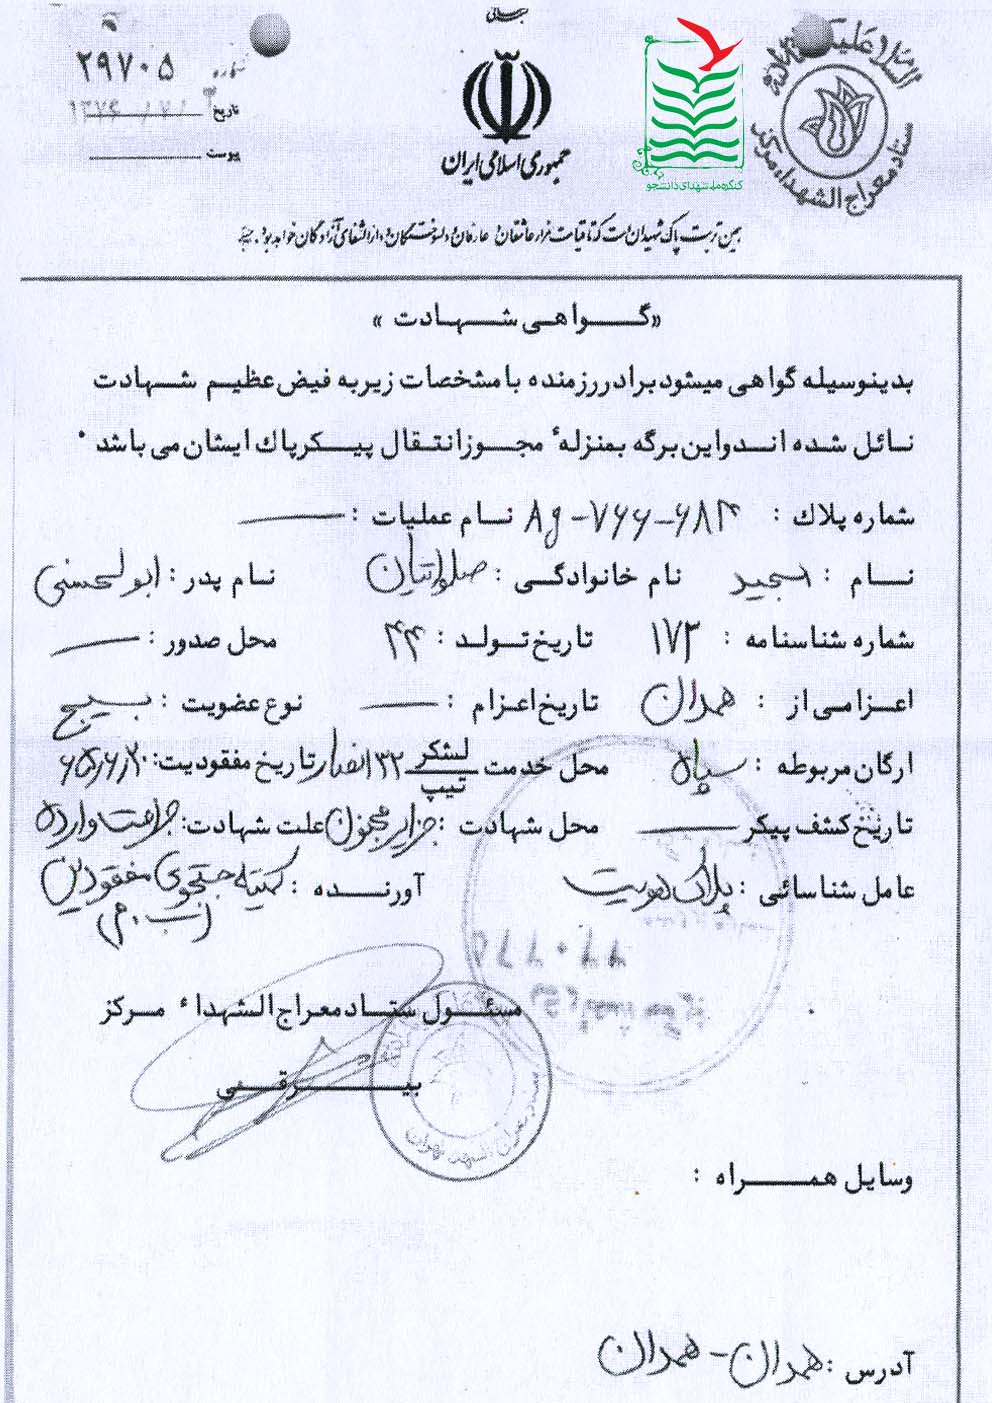 بسمه تعالی
شماره ۲۹۷۰۵
تاریخ ۱۳۷۶/۷/۳
پیوست
جمهوری اسلامی ایران
کنگره ملی شهدای دانشجو
السلام علیک
ستاد معراج الشهداء مرکز
همین تربت پاک شهیدان است که تا قیامت مزار عاشقان و عارفان و دلسوختگان و دارالشفای آزادگان خواهد بود.
«گواهی شهادت»
بدینوسیله گواهی میشود برادر رزمنده با مشخصات زیر به فیض عظیم شهادت
نائل شده اند و این برگه بمنزله ٔ مجوز انتقال پیکر پاك ایشان می باشد ۰
شماره پلاك : ۶۸۳-۷۶۶-Ag نام عملیات : ــــ
نام : مجید نام خانوادگی : صلواتیان نام پدر : ابوالحسنی
شماره شناسنامه : ۱۷۳ تاریخ تولد : ۴۴ محل صدور : ــــ
اعزامی از : همدان تاریخ اعزام : ــــ نوع عضویت : بسیج
ارگان مربوطه : سپاه محل خدمت لشکر تیپ ۳۲ انصار تاریخ مفقودیت:
تاریخ کشف پیکر ــــ محل شهادت : جزایر مجنون علت شهادت: جراحت وارده
عامل شناسائی : پلاک هویت آورنده : کمیته جستجوی مفقودین
مسئول ستاد معراج الشهداء مرکز
بیرقی
ستاد معراج الشهداء تهران
وسایل همراه :
آدرس : همدان - همدان